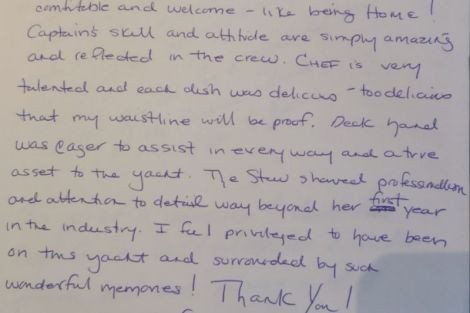 comfortable and welcome - like being Home!
Captain's skill and attitude are simply amazing
and reflected in the crew. CHEF is very
talented and each dish was delicious - too delicious
that my waistline will be proof. Deck hand
was eager to assist in every way and a true
asset to the yacht. The Stew showed professionalism
and attention to detail way beyond her first year
in the industry. I feel privileged to have been
on this yacht and surrounded by such
wonderful memories! Thank You!